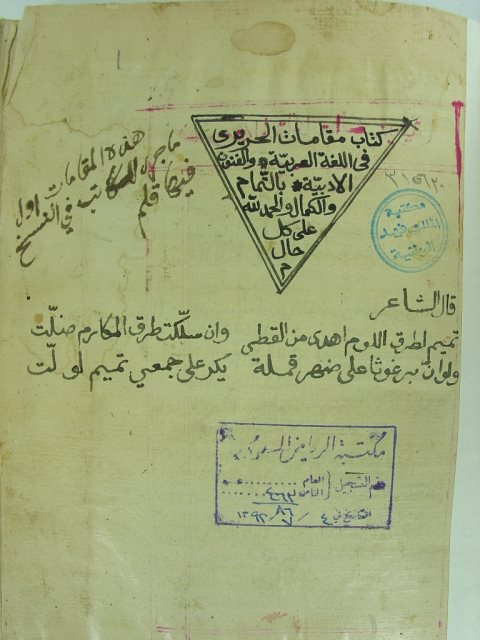 كتاب مقامات الحريري
فى اللغة العربيّة والفنون
الادبيّة بالتمام
والكمال والحمد لله
على كل
حال
م
هذه المقامات اول
ما جرى الكاتب في النسخ
فيها قلم
٣١٥٦٢٠٠
مكتبة
الملك فهد
الوطنية
قال الشاعر
تميم لطرق الاوم اهدى من القطى وان سلكت طرق المكارم ضلّت
ولو انّ برغوثا على ضهر قملة يكر على جمعي تميم لولّت
مكتبة الرياض السعودية
رقم التسجيل العام
الخاص ٤٦٣
٨٦
التاريخ في ٤ / ٧ / ١٣٩٢